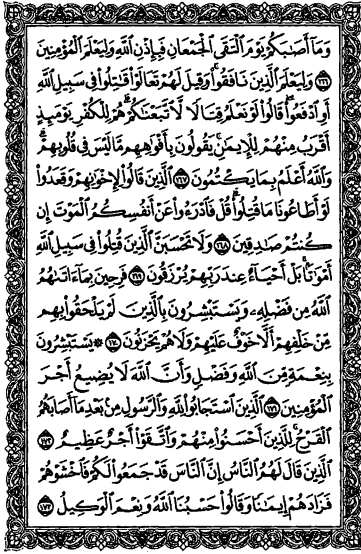 وَمَآ أَصَـٰبَكُمْ يَوْمَ ٱلْتَقَى ٱلْجَمْعَانِ فَبِإِذْنِ ٱللَّهِ وَلِيَعْلَمَ ٱلْمُؤْمِنِينَ
١٦٦ وَلِيَعْلَمَ ٱلَّذِينَ نَافَقُوا۟ ۚ وَقِيلَ لَهُمْ تَعَالَوْا۟ قَـٰتِلُوا۟ فِى سَبِيلِ ٱللَّهِ
أَوِ ٱدْفَعُوا۟ ۖ قَالُوا۟ لَوْ نَعْلَمُ قِتَالًا لَّٱتَّبَعْنَـٰكُمْ ۗ هُمْ لِلْكُفْرِ يَوْمَئِذٍ
أَقْرَبُ مِنْهُمْ لِلْإِيمَـٰنِ ۚ يَقُولُونَ بِأَفْوَٰهِهِم مَّا لَيْسَ فِى قُلُوبِهِمْ ۗ
وَٱللَّهُ أَعْلَمُ بِمَا يَكْتُمُونَ ١٦٧ ٱلَّذِينَ قَالُوا۟ لِإِخْوَٰنِهِمْ وَقَعَدُوا۟
لَوْ أَطَاعُونَا مَا قُتِلُوا۟ ۗ قُلْ فَٱدْرَءُوا۟ عَنْ أَنفُسِكُمُ ٱلْمَوْتَ إِن
كُنتُمْ صَـٰدِقِينَ ١٦٨ وَلَا تَحْسَبَنَّ ٱلَّذِينَ قُتِلُوا۟ فِى سَبِيلِ ٱللَّهِ
أَمْوَٰتًۢا ۚ بَلْ أَحْيَآءٌ عِندَ رَبِّهِمْ يُرْزَقُونَ ١٦٩ فَرِحِينَ بِمَآ ءَاتَىٰهُمُ
ٱللَّهُ مِن فَضْلِهِۦ وَيَسْتَبْشِرُونَ بِٱلَّذِينَ لَمْ يَلْحَقُوا۟ بِهِم
مِّنْ خَلْفِهِمْ أَلَّا خَوْفٌ عَلَيْهِمْ وَلَا هُمْ يَحْزَنُونَ ١٧٠ ۞ يَسْتَبْشِرُونَ
بِنِعْمَةٍ مِّنَ ٱللَّهِ وَفَضْلٍ وَأَنَّ ٱللَّهَ لَا يُضِيعُ أَجْرَ
ٱلْمُؤْمِنِينَ ١٧١ ٱلَّذِينَ ٱسْتَجَابُوا۟ لِلَّهِ وَٱلرَّسُولِ مِنۢ بَعْدِ مَآ أَصَابَهُمُ
ٱلْقَرْحُ ۚ لِلَّذِينَ أَحْسَنُوا۟ مِنْهُمْ وَٱتَّقَوْا۟ أَجْرٌ عَظِيمٌ ١٧٢
ٱلَّذِينَ قَالَ لَهُمُ ٱلنَّاسُ إِنَّ ٱلنَّاسَ قَدْ جَمَعُوا۟ لَكُمْ فَٱخْشَوْهُمْ
فَزَادَهُمْ إِيمَـٰنًا وَقَالُوا۟ حَسْبُنَا ٱللَّهُ وَنِعْمَ ٱلْوَكِيلُ ١٧٣